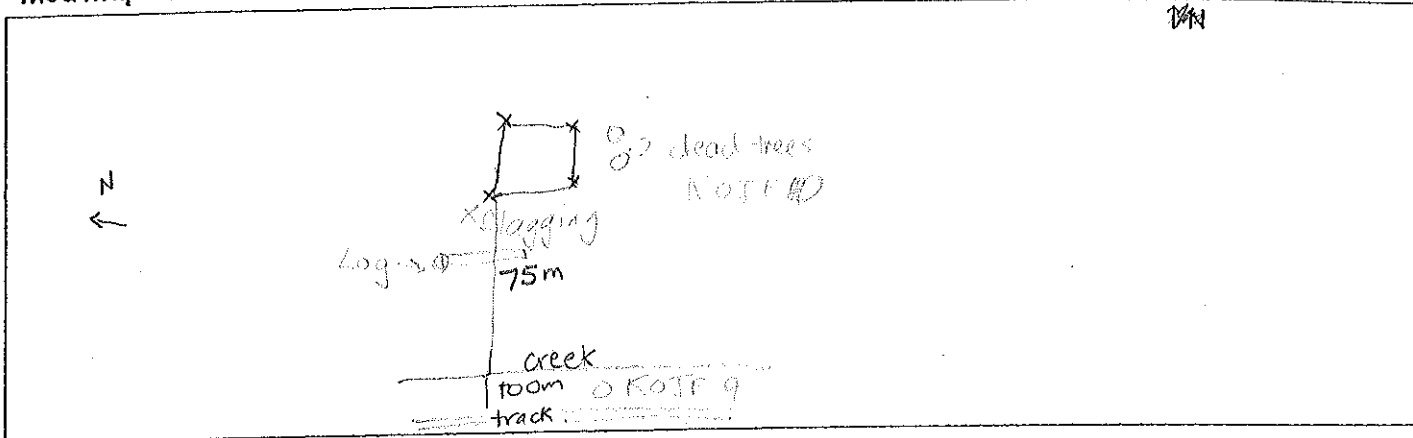 N
dead trees
KOJF
X flagging
Log
75m
creek
100m O KOJF 9
track